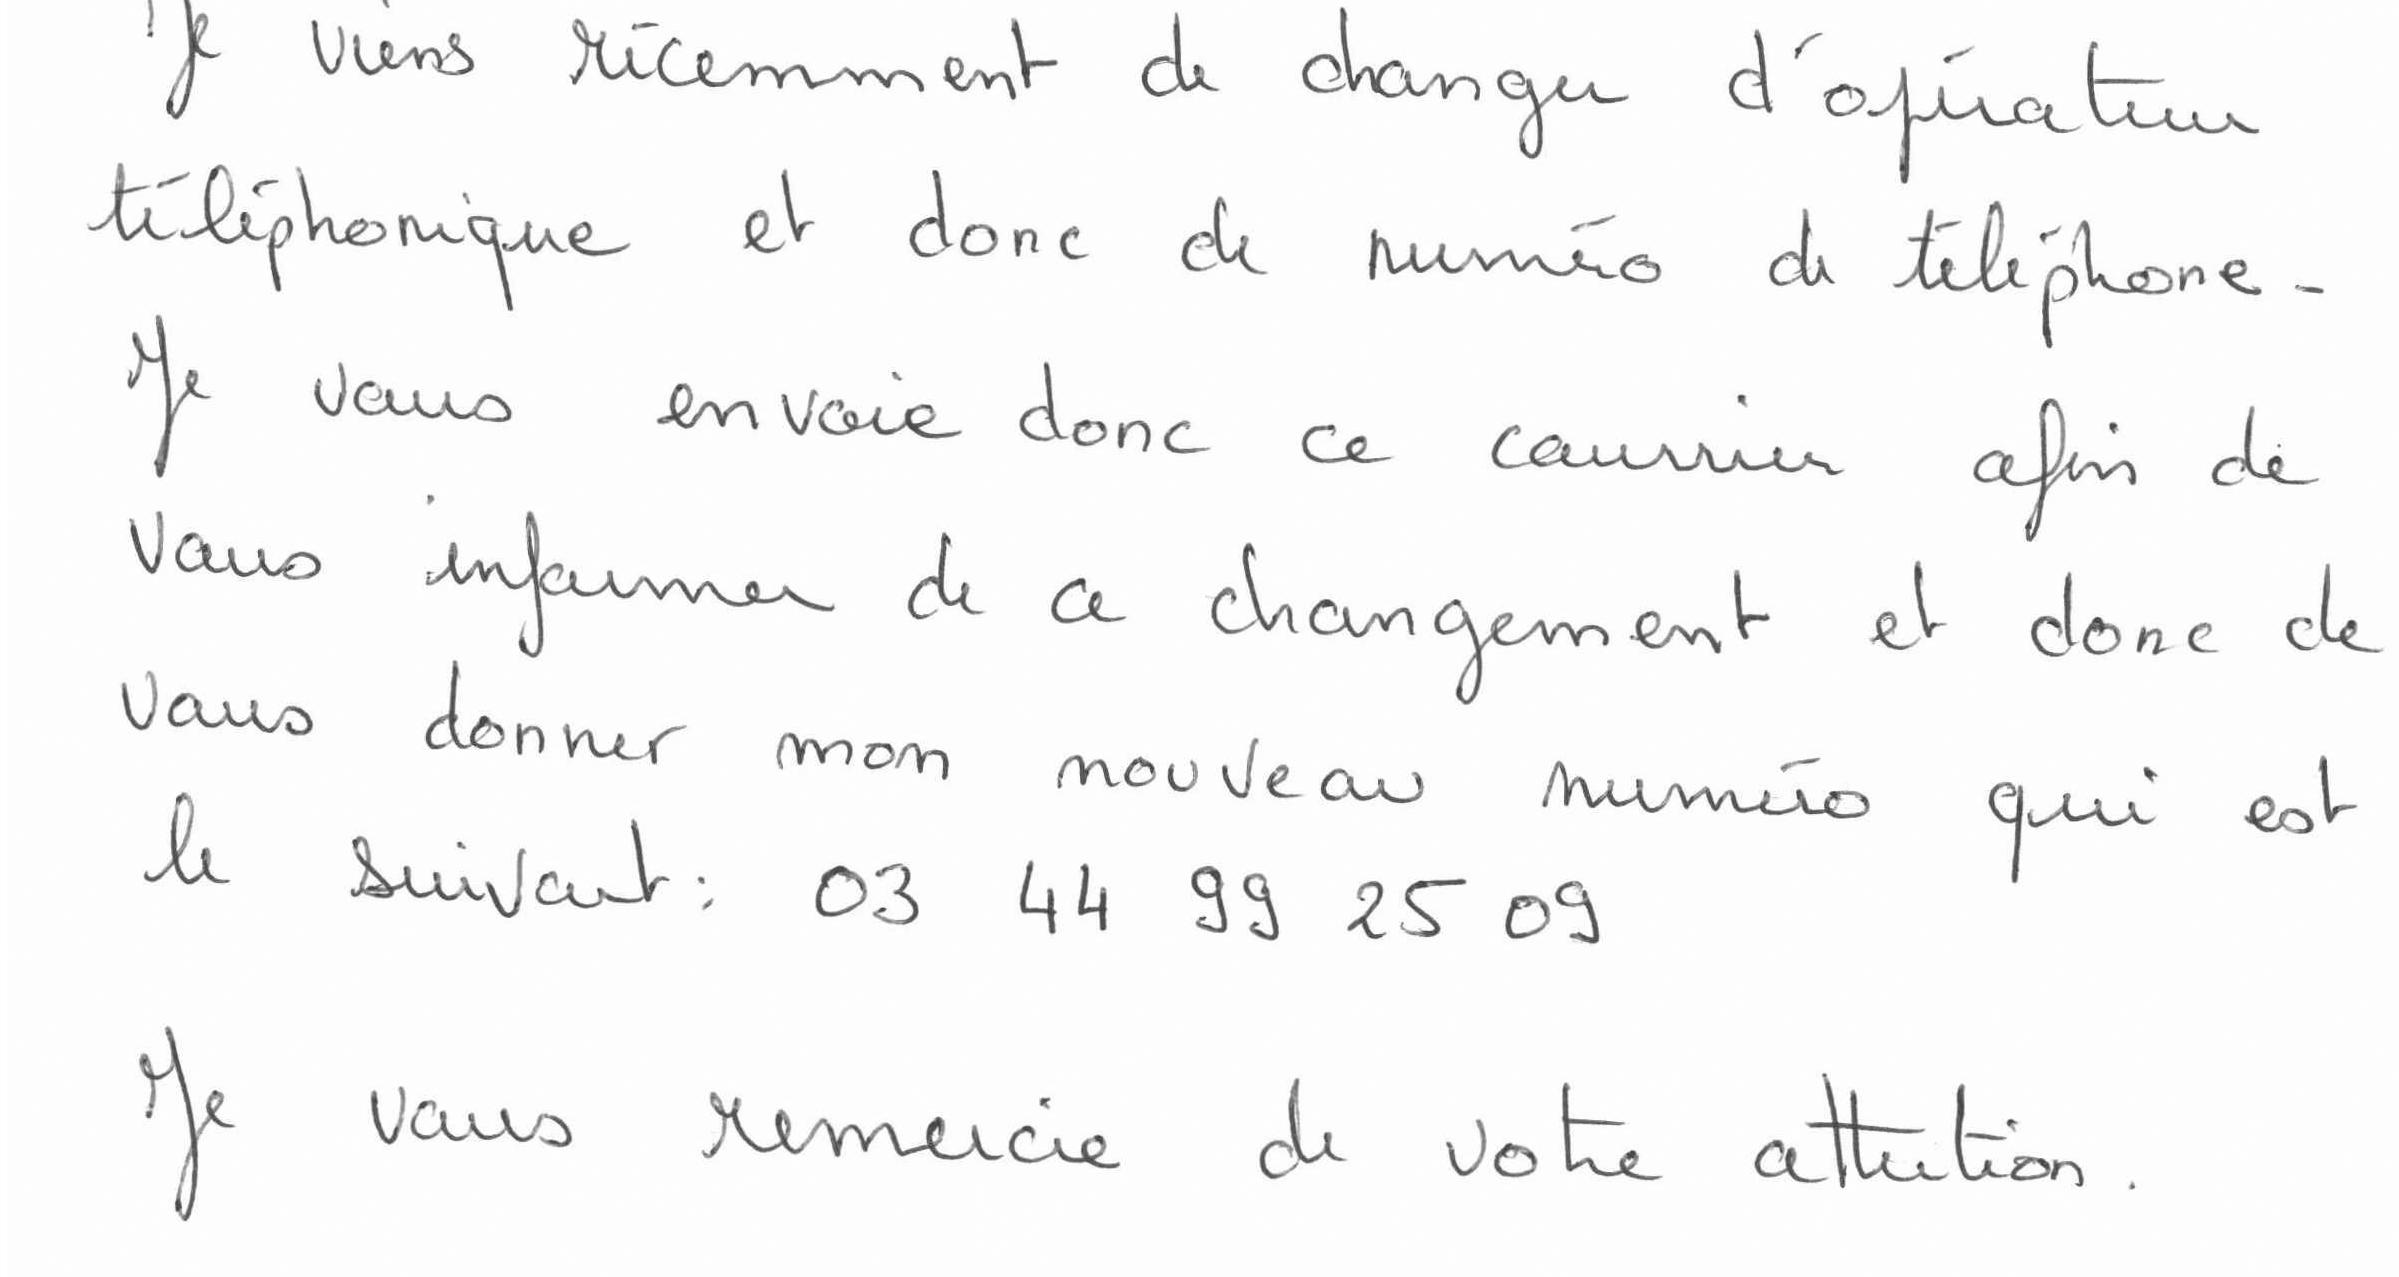 Je viens récemment de changer d'opérateur
téléphonique et donc de numéro de téléphone.
Je vous envoie donc ce courrier afin de
vous informer de ce changement et donc de
vous donner mon nouveau numéro qui est
le suivant : 03 44 99 25 09
Je vous remercie de votre attention.